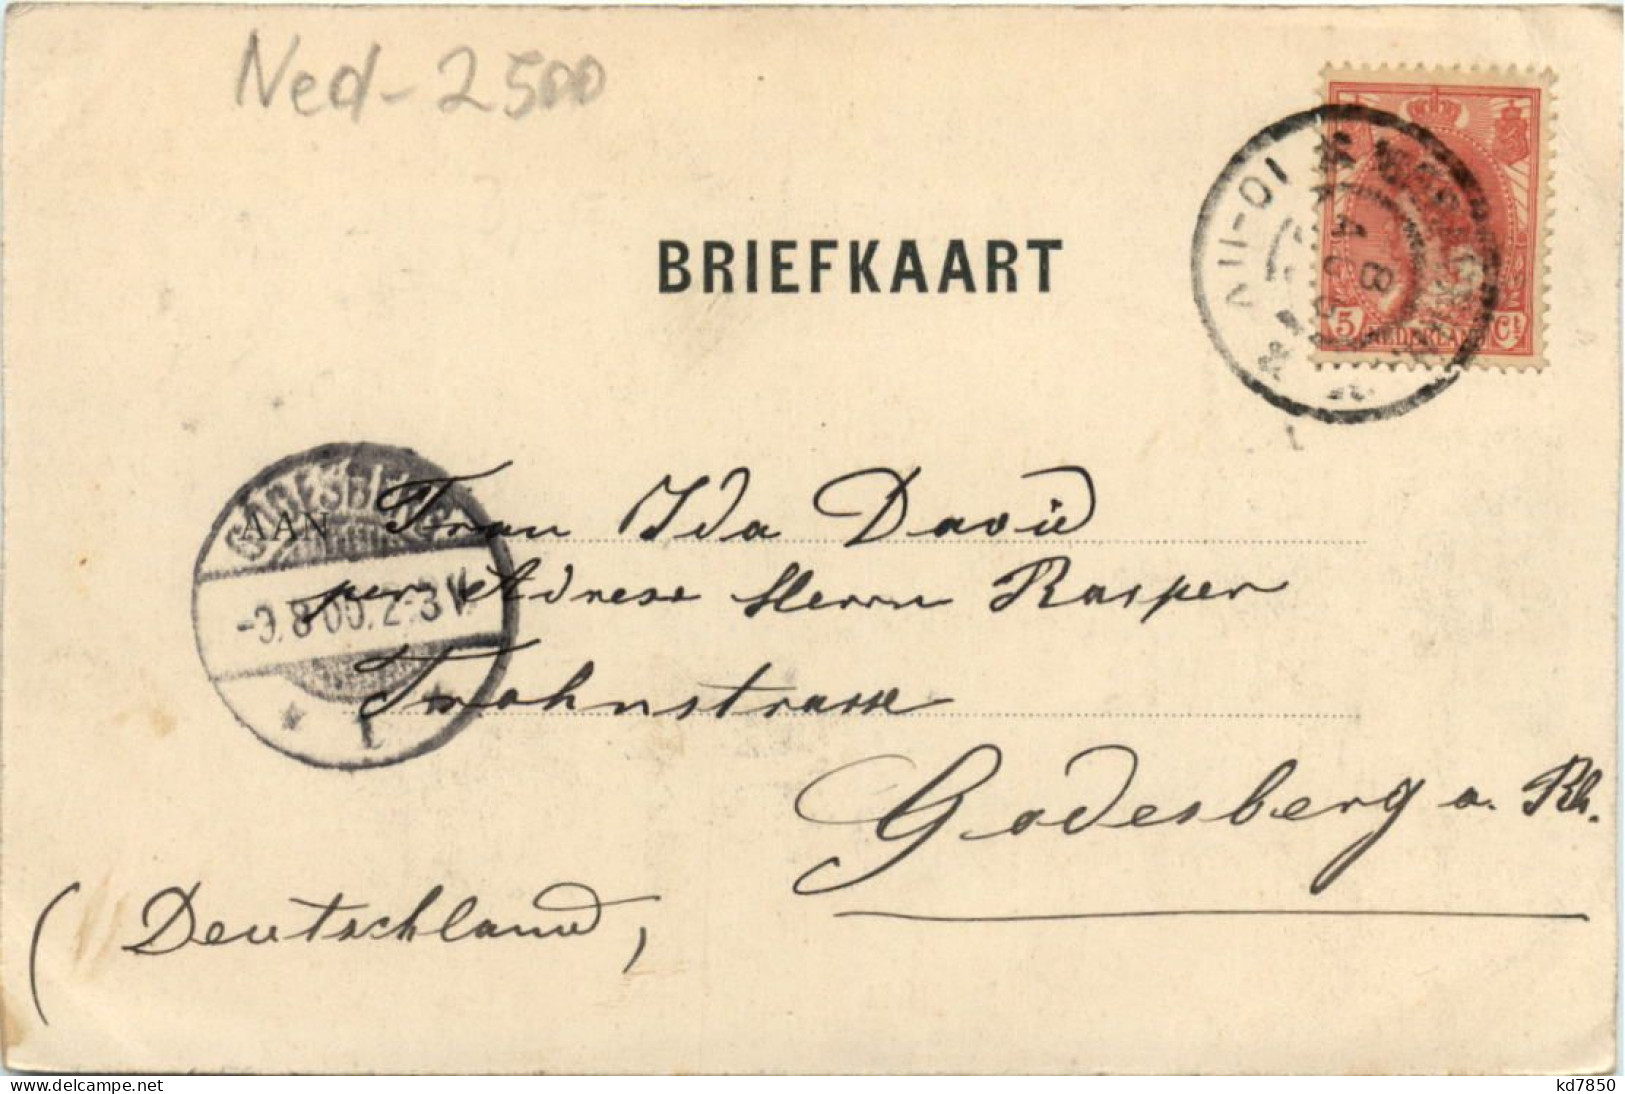 Ned-2500
BRIEFKAART
5 NEDERLAND Ct
10-11V
8
GODESBERG
-9.8.00.2-3V.
AAN Frau Ida David
per Adresse Herrn Rasper
Frohnstrasse
Godesberg a. Rh.
(Deutschland)
kd7850